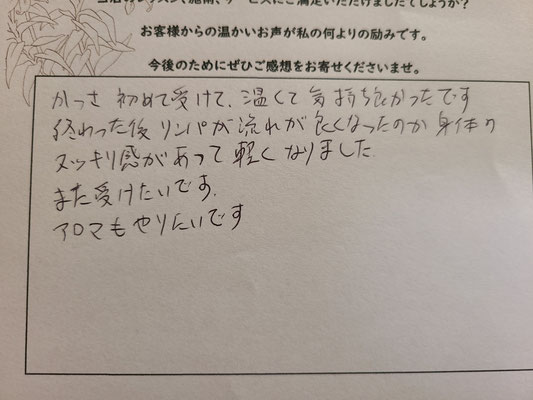 当店のレッスン、施術、サービスにご満足いただけましたでしょうか？
お客様からの温かいお声が私の何よりの励みです。
今後のためにぜひご感想をお寄せくださいませ。
かっさ 初めて受けて、温くて気持ち良かったです
終わった後リンパが流れが良くなったのか身体の
スッキリ感があって軽くなりました
また受けたいです、
アロマもやりたいです